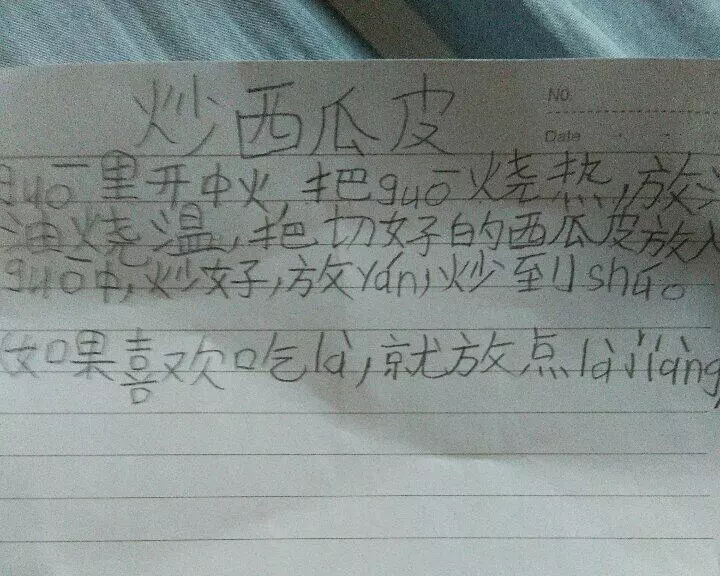 炒西瓜皮
NO
Date
guō里开中火,把guō烧热,放
油烧温,把切好的西瓜皮放入
guō中,炒好,放yán,炒到shúo。
如果喜欢吃là,就放点làjiàng